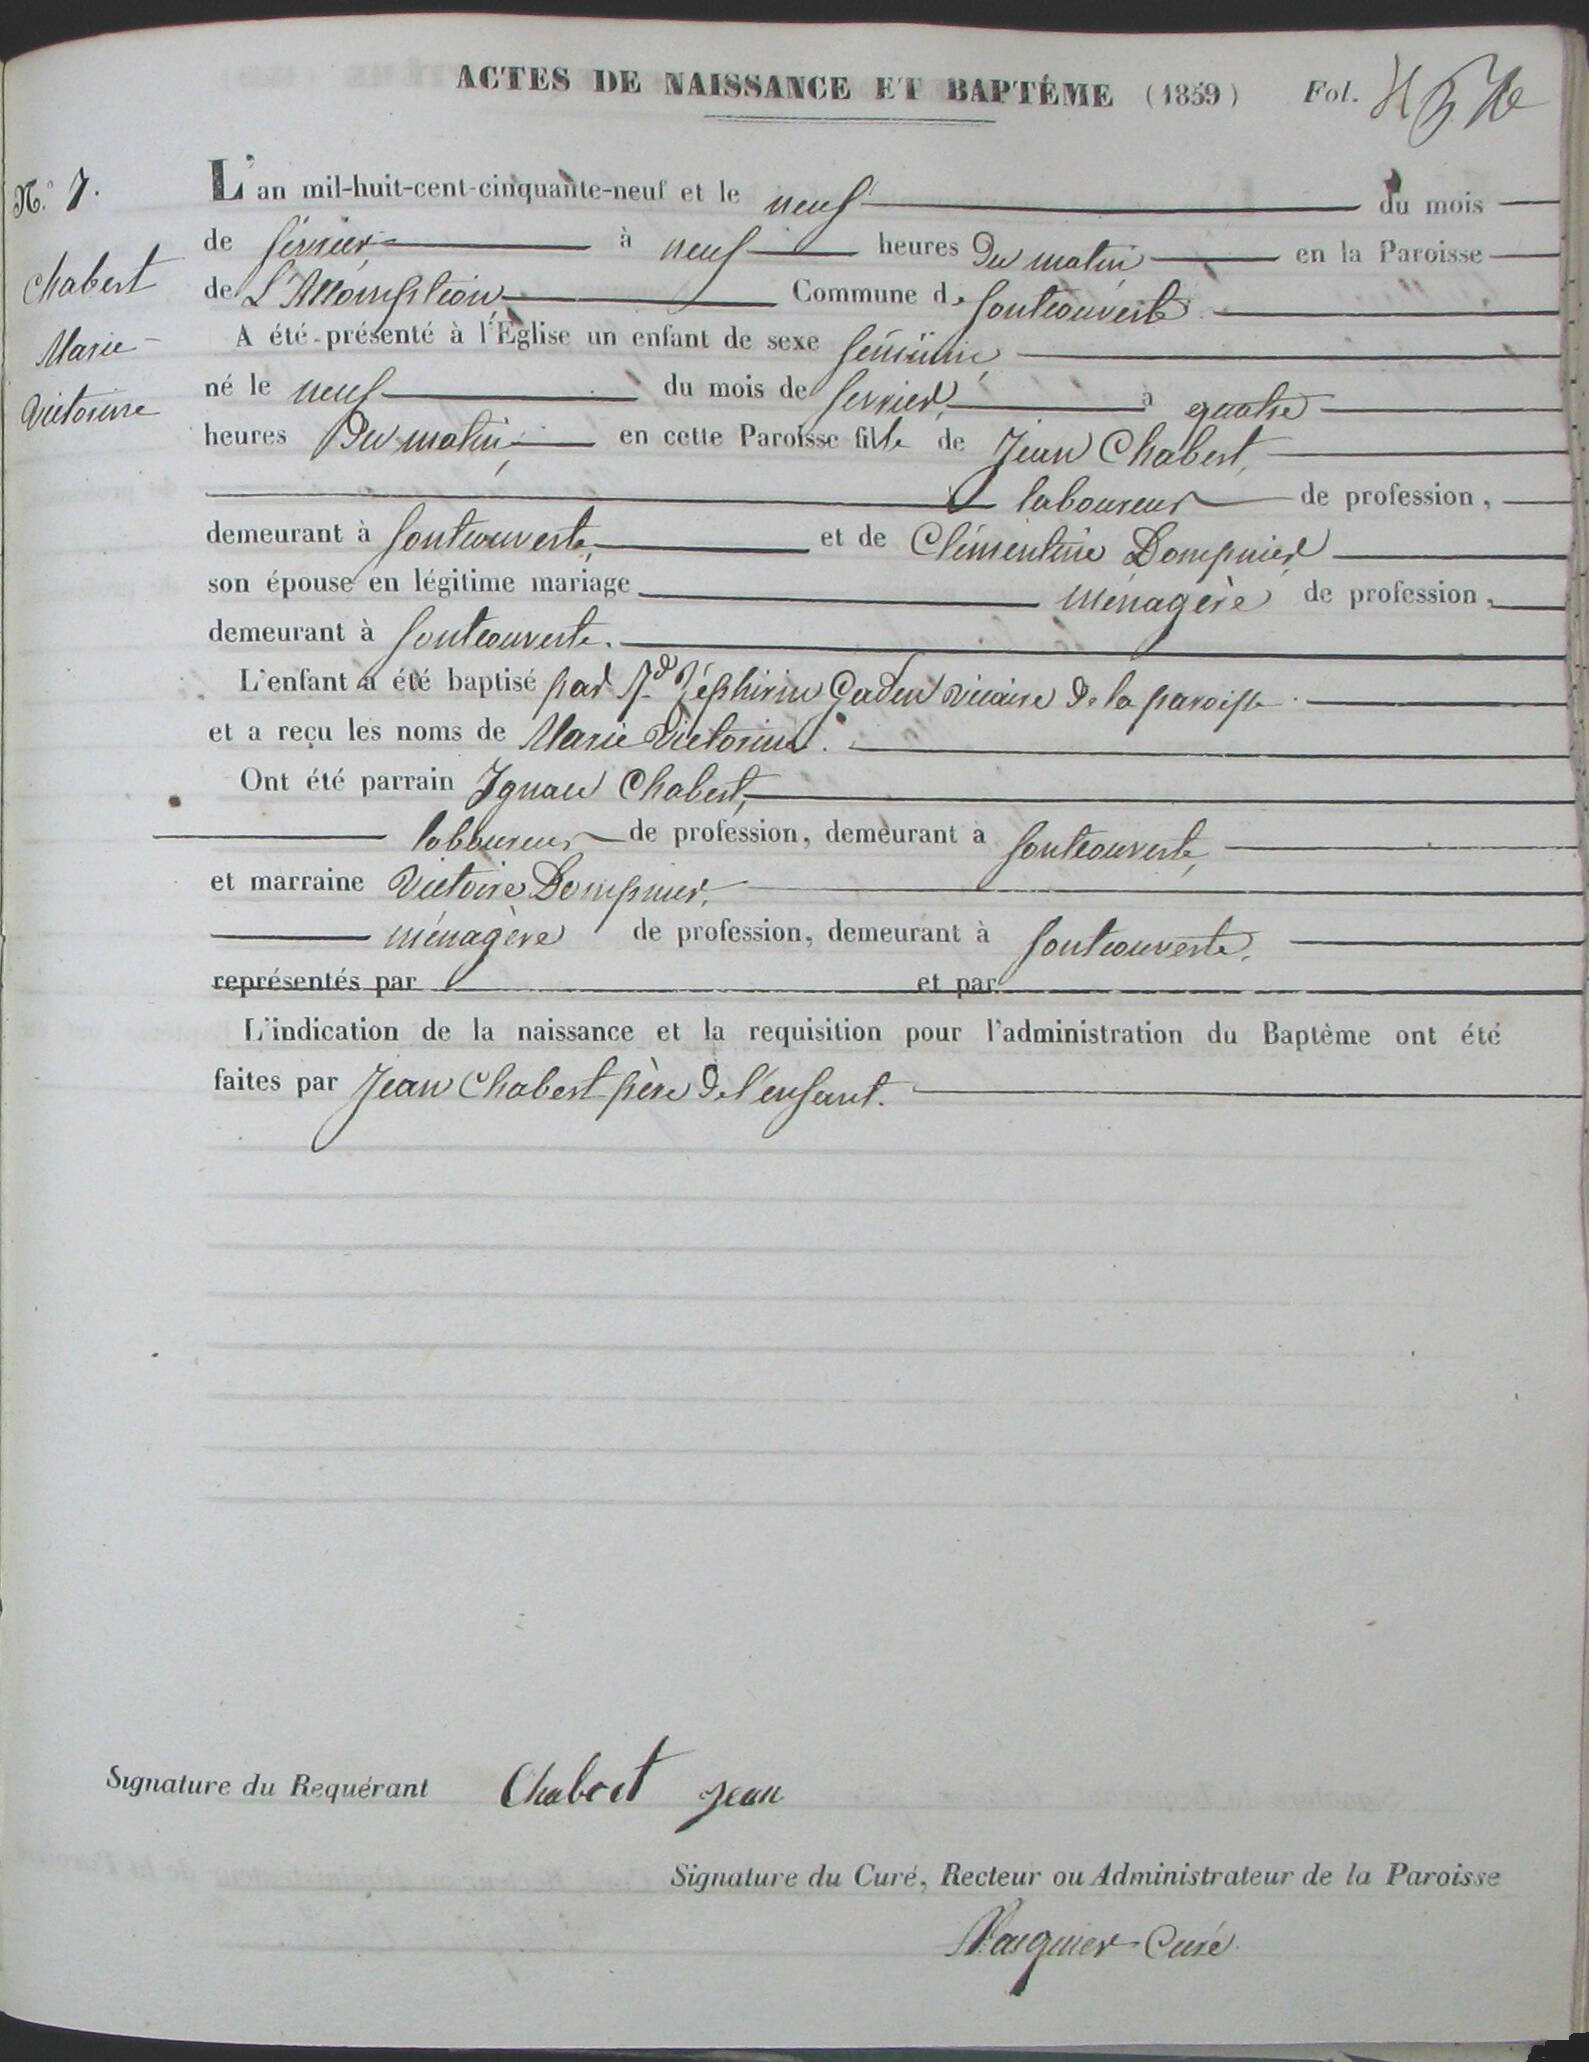 ACTES DE NAISSANCE ET BAPTÊME (1859) Fol.
N.° 7.
Chabert
Marie
Victorine
L'an mil-huit-cent-cinquante-neuf et le neuf du mois
de février, à neuf heures Du matin en la Paroisse
de L'Assomption Commune de fontcouverte
A été présenté à l'Église un enfant de sexe féminin,
né le neuf du mois de février, à quatre
heures Du matin, en cette Paroisse fille de Jean Chabert,
laboureur de profession,
demeurant à fontcouverte, et de Clémentine Dompnier
son épouse en légitime mariage ménagère de profession,
demeurant à fontcouverte.
L'enfant a été baptisé par Rd Zéphirin Gaden vicaire De la paroisse
et a reçu les noms de Marie Victorine.
Ont été parrain Ignace Chabert,
laboureur de profession, demeurant à fontcouverte,
et marraine Victoire Dompnier,
ménagère de profession, demeurant à fontcouverte.
représentés par et par
L'indication de la naissance et la requisition pour l'administration du Baptème ont été
faites par Jean Chabert père De l'enfant.
Signature du Requérant Chabert jean
Signature du Curé, Recteur ou Administrateur de la Paroisse
Curé